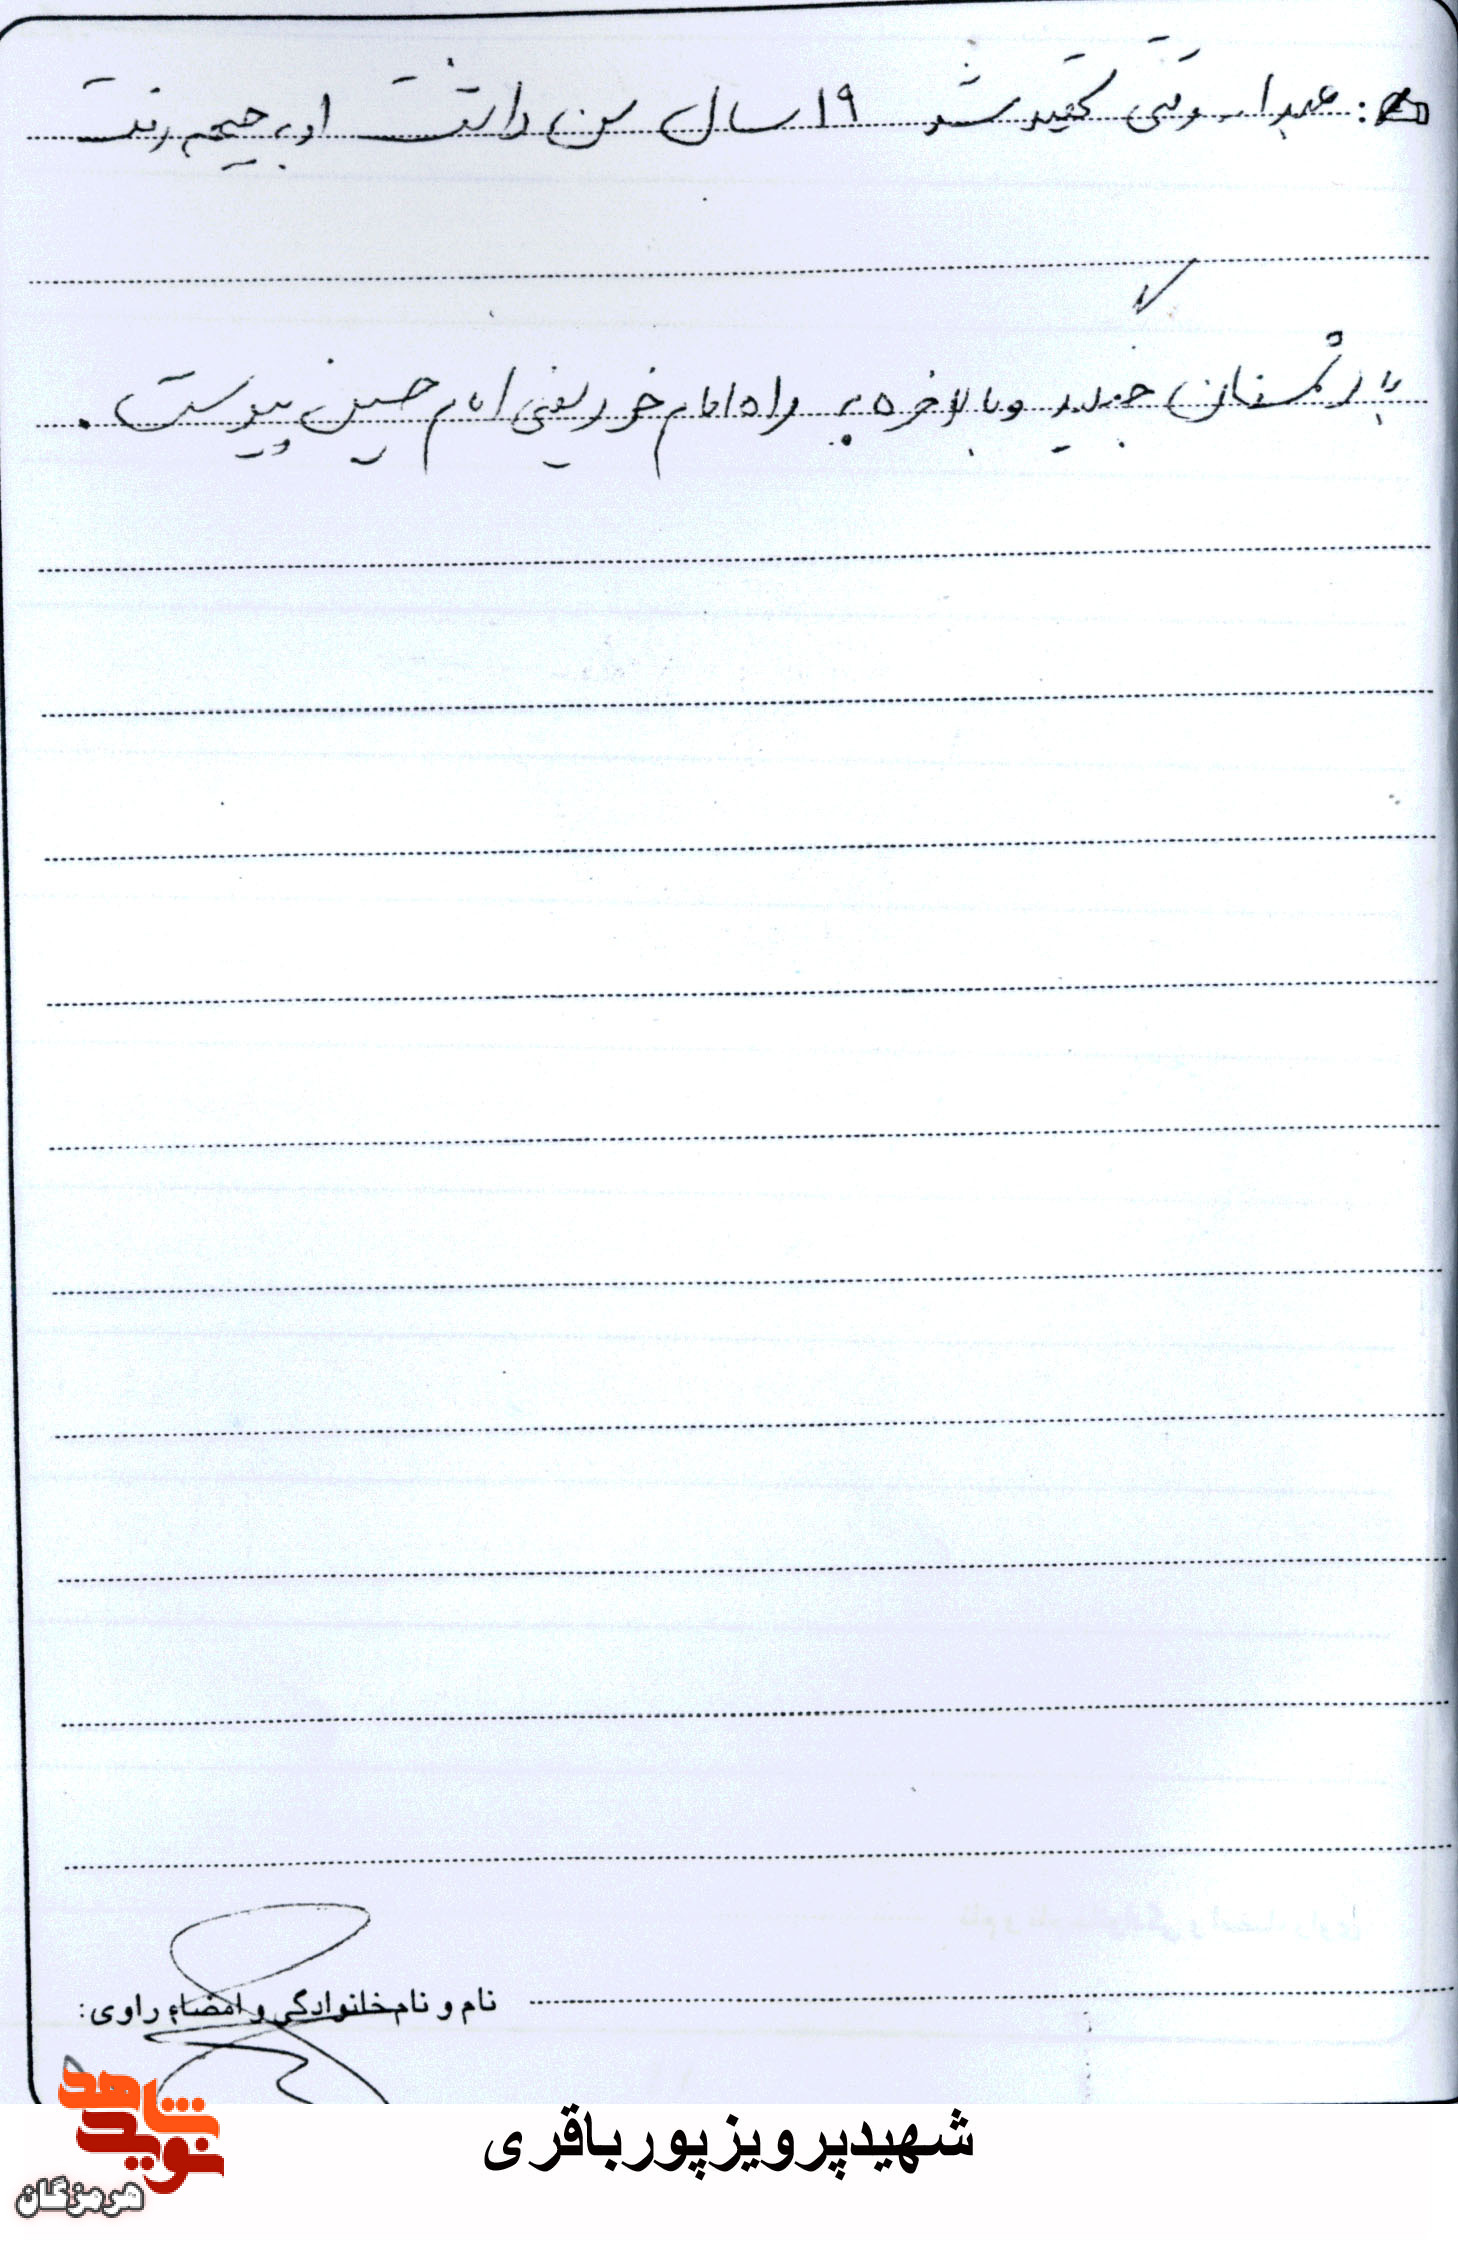 عبدا... وقتی شهید شد ۱۹ سال سن داشت او به جبهه رفت
با دشمنان جنگید و بالاخره به راه امام خود یعنی امام حسین پیوست.
نام و نام خانوادگی و امضاء راوی:
شهیدپرویزپورباقری
نوید شاهد
هرمزگان